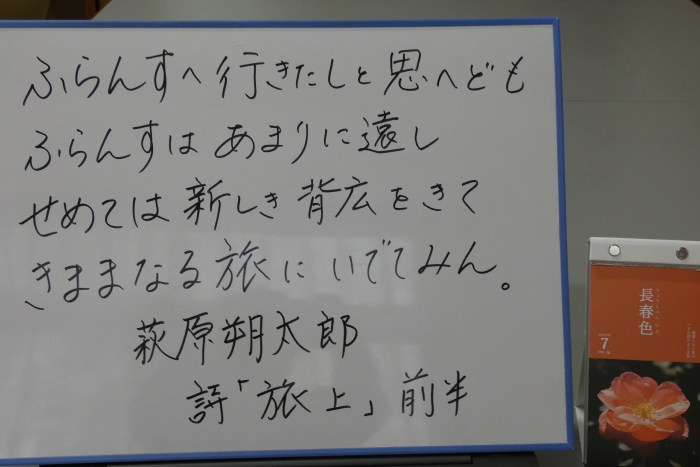 ふらんすへ行きたしと思へども
ふらんすはあまりに遠し
せめては新しき背広をきて
きままなる旅にいでてみん。
萩原朔太郎
詩「旅上」前半
長春色
7